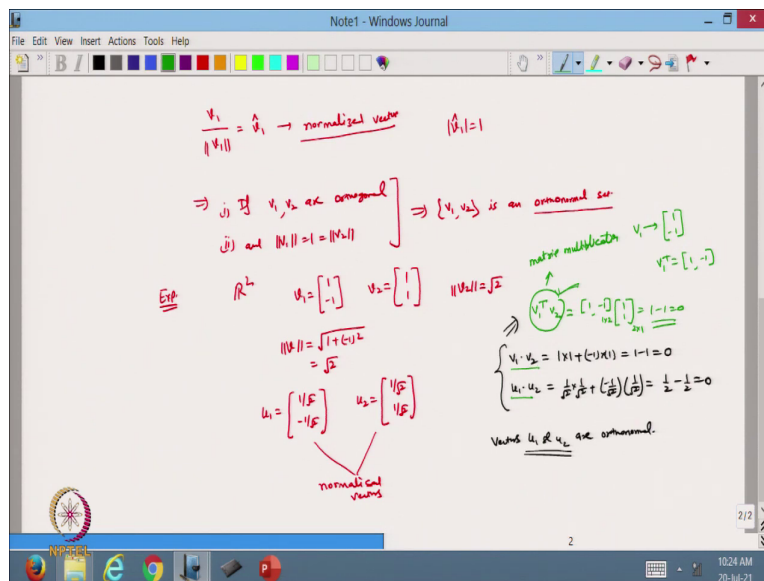 Note1 - Windows Journal
File Edit View Insert Actions Tools Help
B I
v₁/||v₁|| = v̂₁ → normalized vector |v̂₁| = 1
⇒ i) If v₁, v₂ are orthogonal
ii) and ||v₁|| = 1 = ||v₂||
⇒ {v₁, v₂} is an orthonormal set.
Exp. ℝ² v₁ = [1; -1] v₂ = [1; 1] ||v₂|| = √2
||v|| = √(1+(-1)²
= √2
u₁ = [1/√2; -1/√2] u₂ = [1/√2; 1/√2]
normalised
vectors
matrix multiplication v₁ → [1; -1]
v₁ᵀ = [1, -1]
(v₁ᵀ v₂) = [1, -1]1x2 [1; 1]2x1 = 1-1=0
⇒ v₁ · v₂ = 1×1 + (-1)×(1) = 1-1 = 0
u₁ · u₂ = 1/√2 × 1/√2 + (-1/√2)(1/√2) = 1/2 - 1/2 = 0
Vectors u₁ & u₂ are orthonormal.
NPTEL
2
2/2
10:24 AM
20-Jul-21